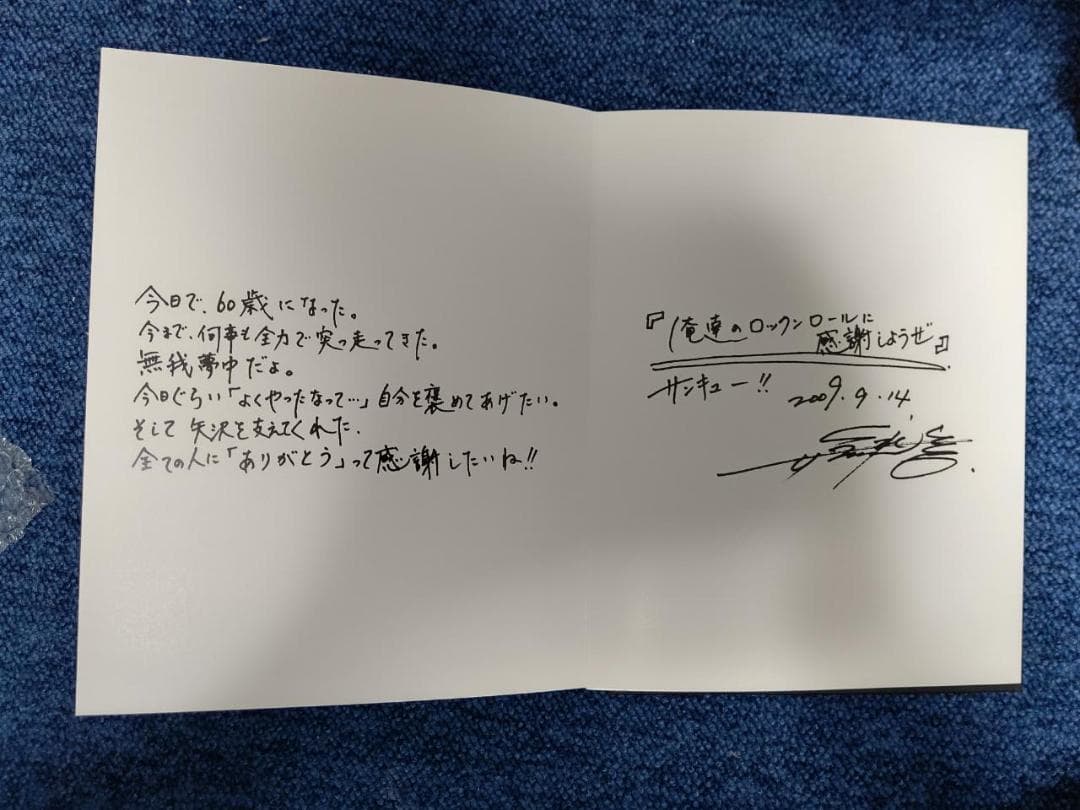 今日で、60歳になった。
今まで、何事も全力で突っ走ってきた。
無我夢中だよ。
今日ぐらい「よくやったなって…」自分を褒めてあげたい。
そして 矢沢を支えてくれた、
全ての人に「ありがとう」って感謝したいね!!
『俺達のロックンロールに
感謝しようぜ』
サンキュー!!
2009.9.14.